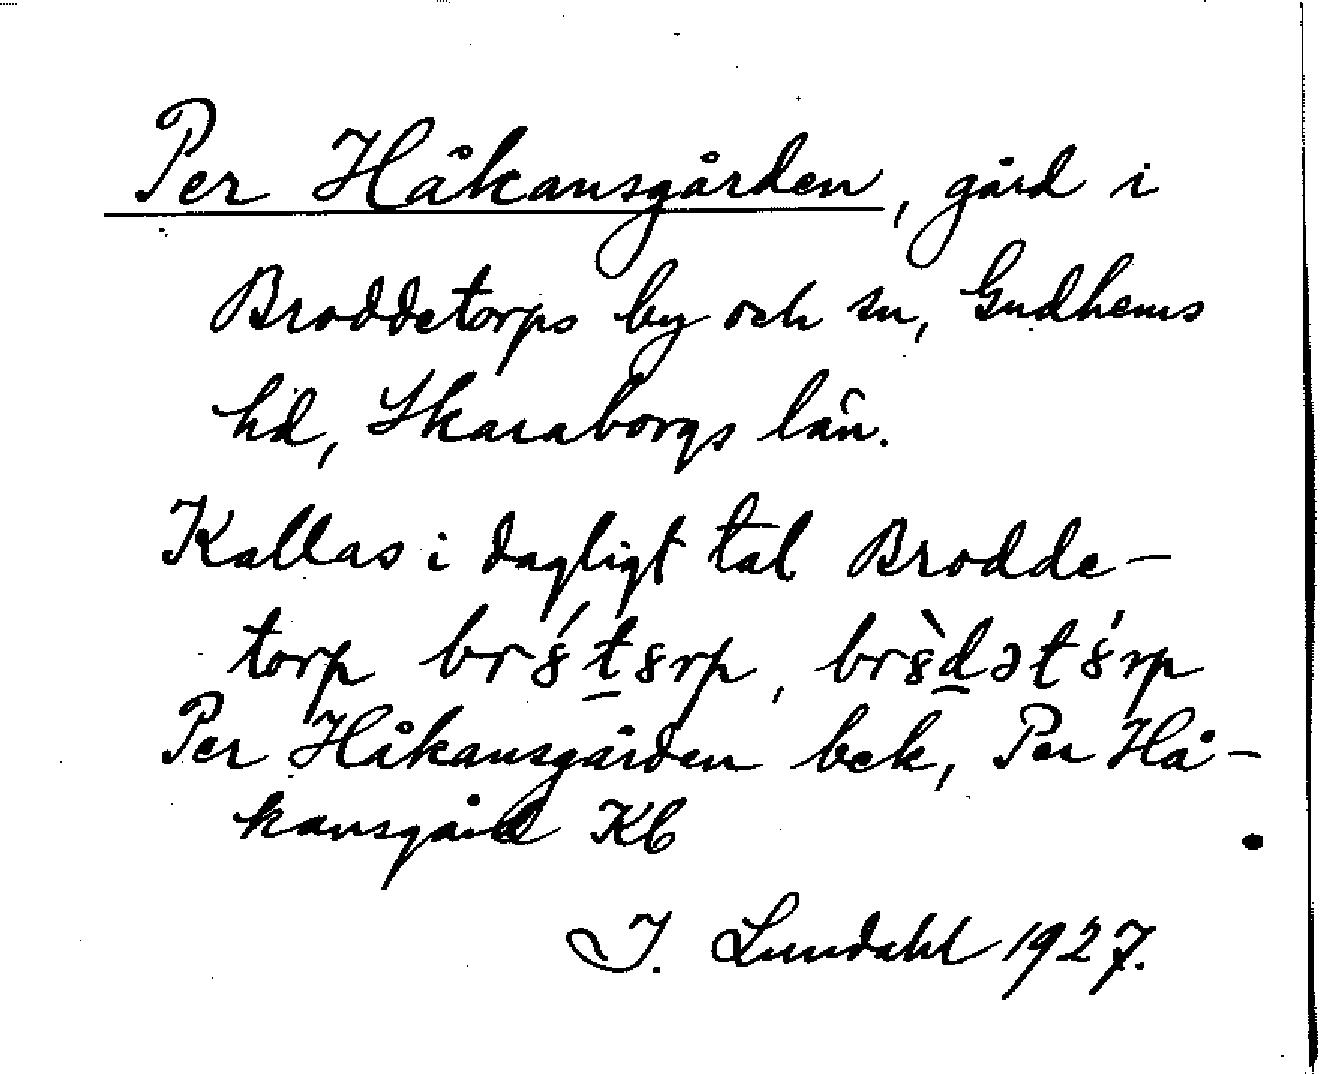 Per Håkansgården, gård i
Broddetorps by och sn, Gudhems
hd, Skaraborgs län.
Kallas i dagligt tal Brodde-
torp br8́t8rp, br8̀dət8́rp
Per Håkansgården bek, Per Hå-
kansgård Kb
I. Lundahl 1927.